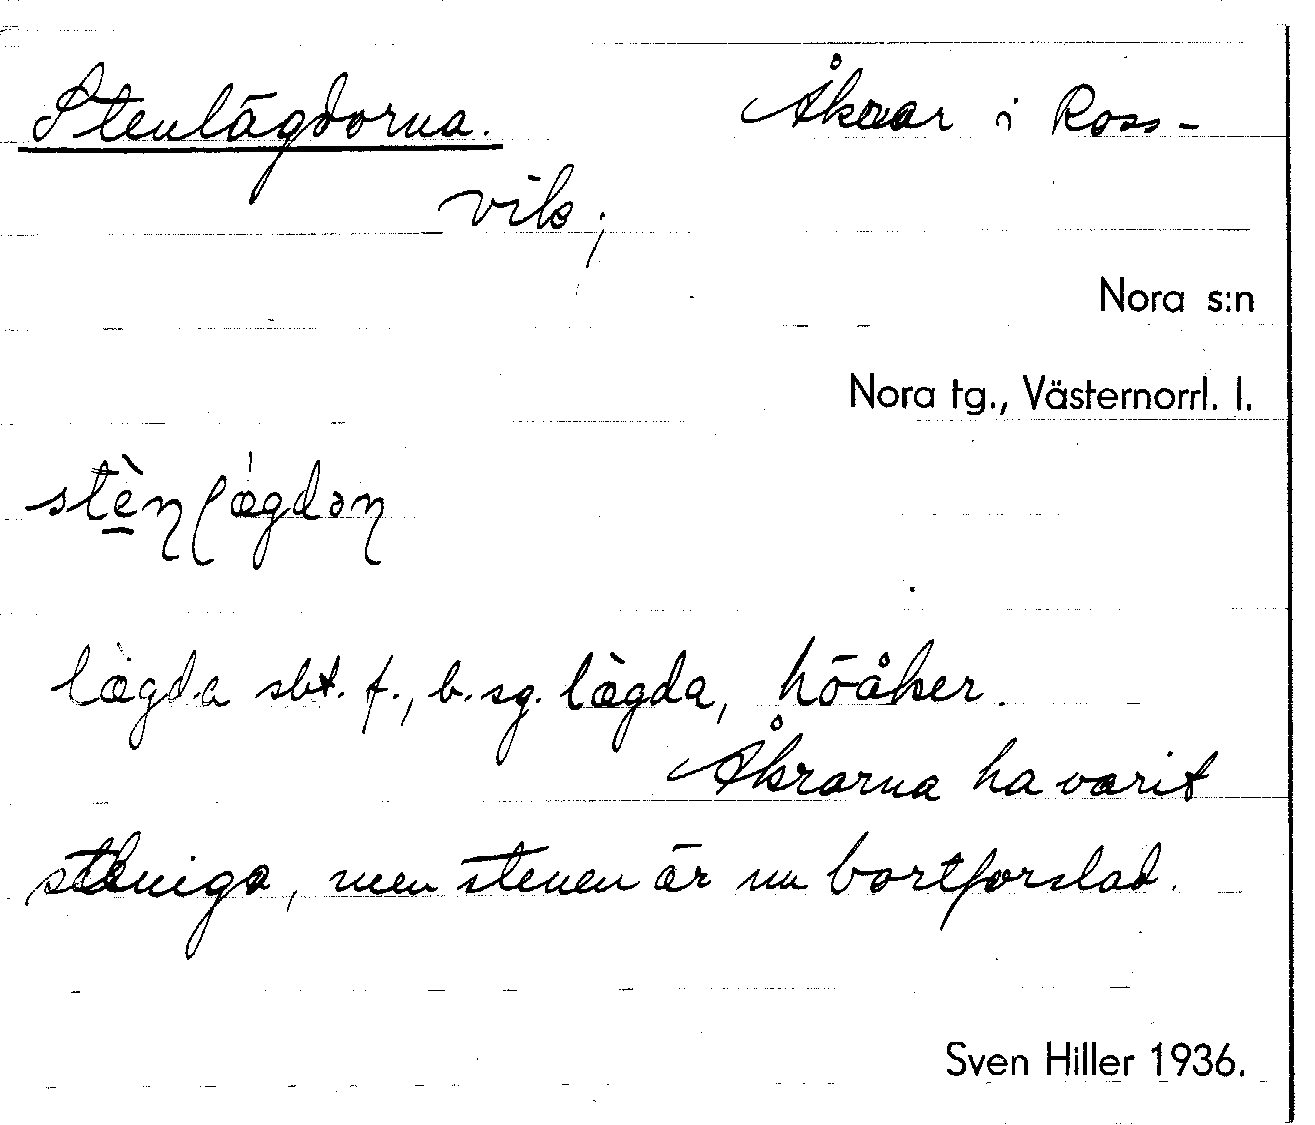 Stenlägdorna. Åkrar i Ross-
vik;
Nora s:n
Nora tg., Västernorrl. l.
stèn lægdən
lægda sbt. f., b. sg. lægda, höåker.
Åkrarna ha varit
steniga, men stenen är nu bortforslad.
Sven Hiller 1936.